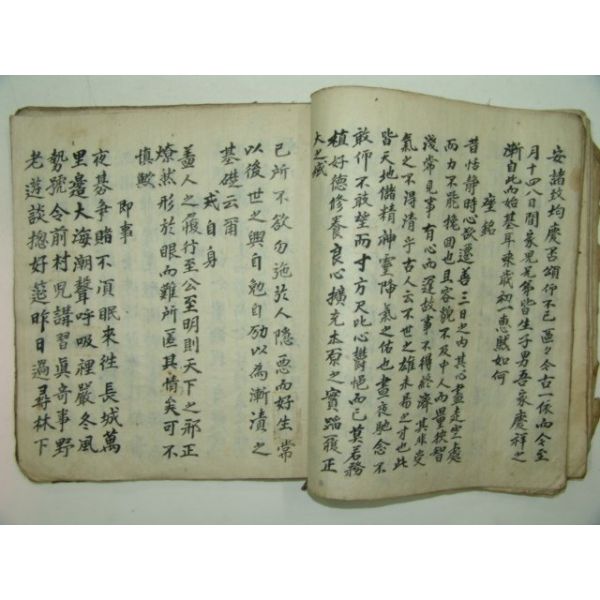 安諸致均慶否頌仰不已區夕今古一依而今至
月十四八日間家兄弟皆生子男吾家慶祥之
漸自此而始基耳來歲初一惠然如何
座銘
昔恬靜時心欲遷善三日之內其心盡走空處
而力不能挽回也且容貌不及中人而量狹智
淺常見事有心而運故事不得終濟其非受
氣之不得清乎古人云不世之雄未易之才也此
皆天地儲精神靈降氣之佑也晝夜馳念不
敢仰不敢坐而寸方尺此心鬱悒而已莫若務
植好德修養良心擴充本原之實蹈履正
大之域
己所不欲勿施於人隱惡而好生常
以後世之興自勉自励以為漸漬之
基礎云爾
戒自身
盖人之履行至公至明則天下之邪正
燎然形於眼而難所匿其情矣可不
慎歟
即事
夜碁爭賭不須眠來往長城萬
里邊大海潮聲呼吸裡嚴冬風
勢號令前村児講習眞奇事野
老遊談摠好莚昨日過尋林下